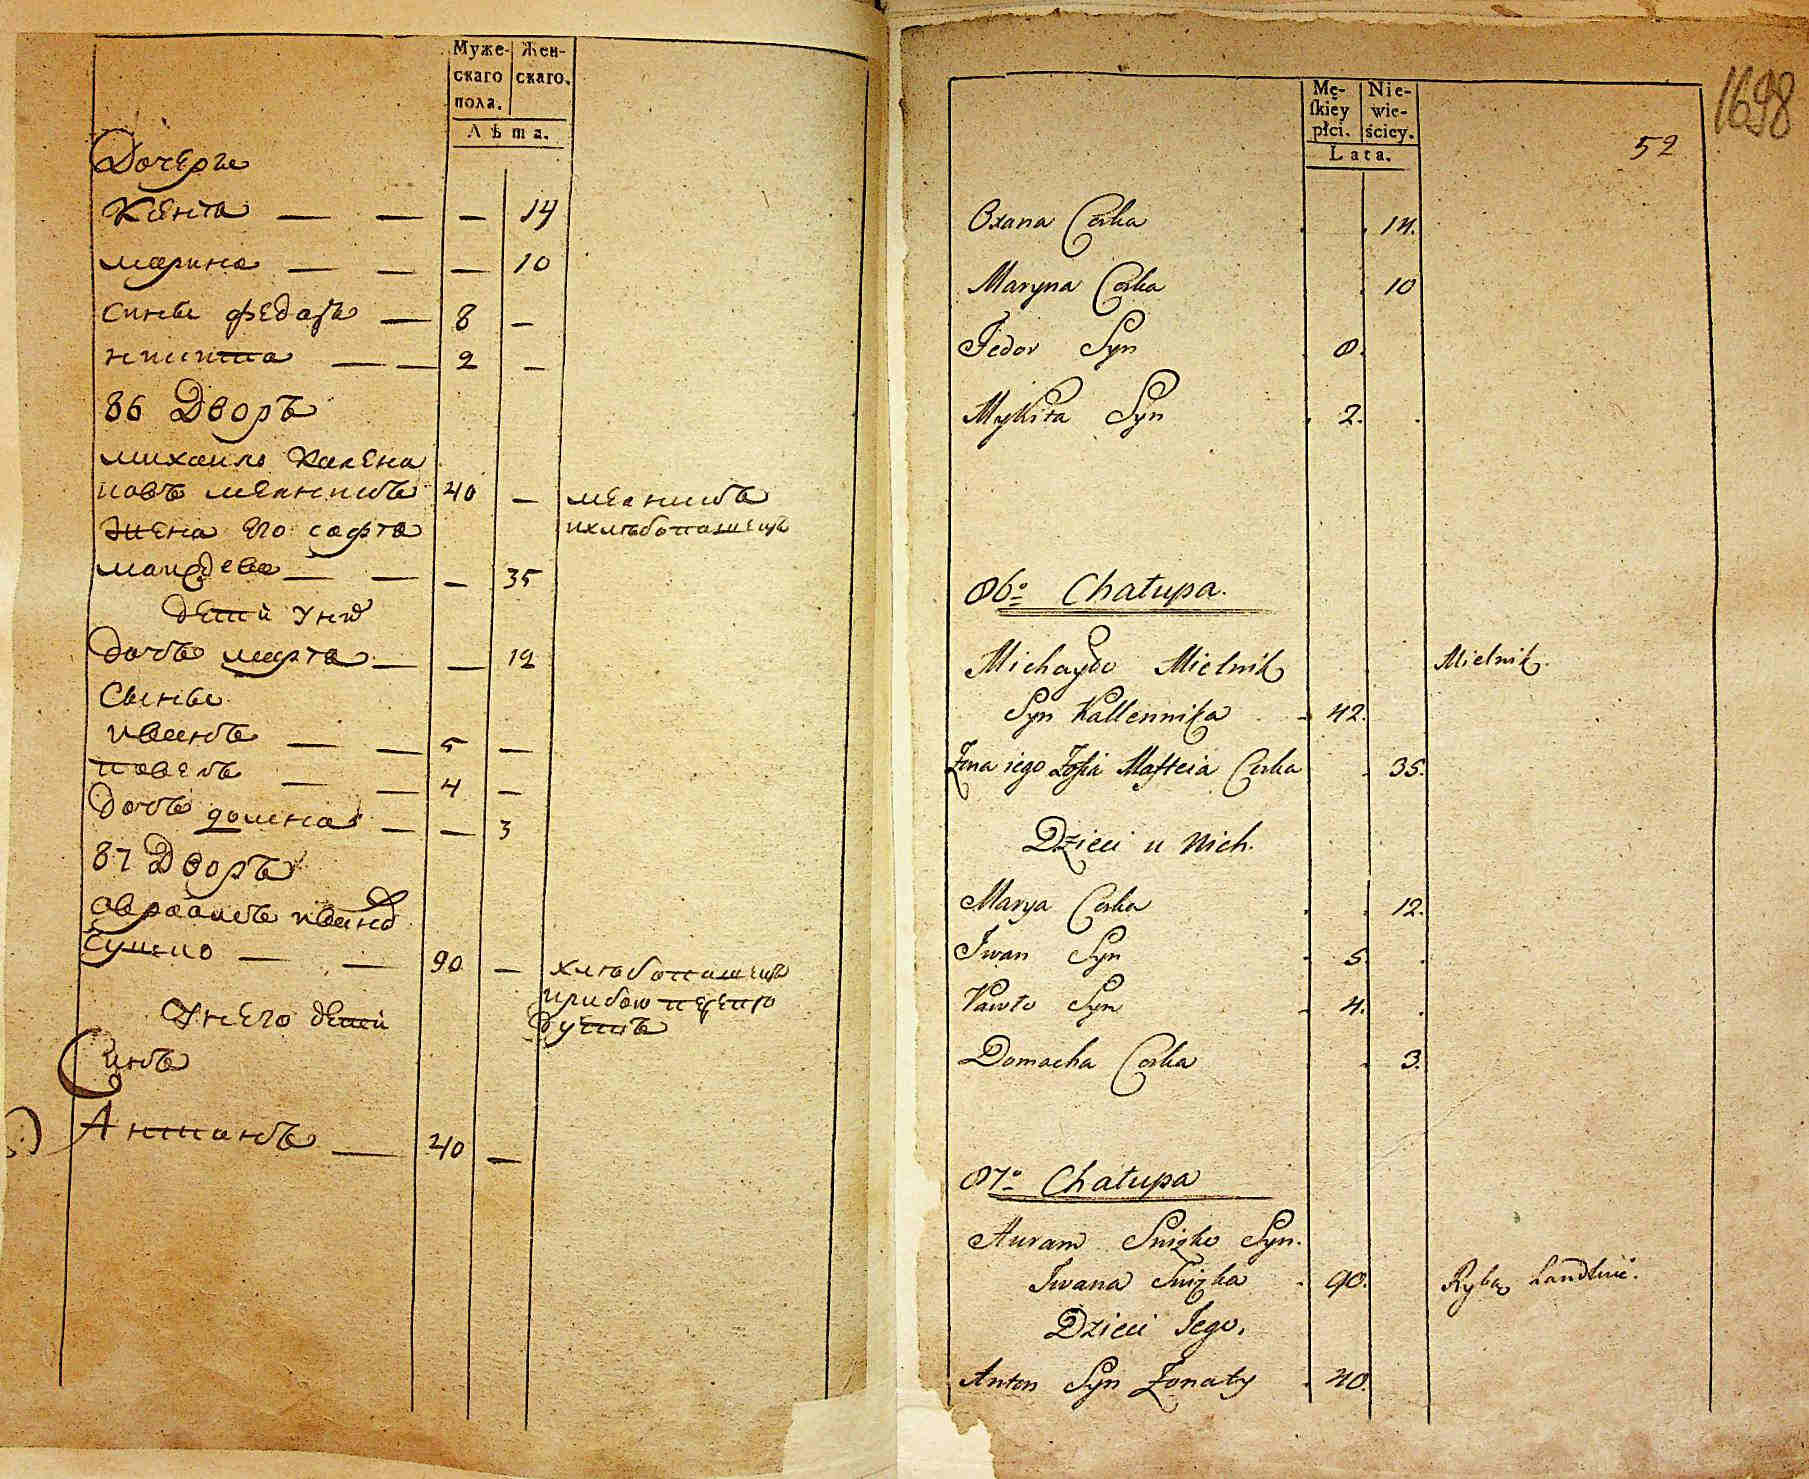 Муже- Жен-
скаго скаго.
пола.
Лѣта.
Дочери
Ксенія — — — 14
марина — — — 10
сины федоръ — 8 —
никита — — 2 —
86 Дворъ
михаило Калени
ковъ мелникъ 40 — мелникъ
жена его софія ихлѣбопашецъ
— — — 35
дети унихъ
дочь марія — — 12
Сыны
иванъ — — 5 —
павелъ — — 4 —
дочь домна — — 3
87 Дворъ
авраамъ ивановъ
— — 90 — хлѣбопашецъ
Унего дети
Синъ
Антонъ — 40 —
1698
52
Mę- Nie-
skiey wie-
płci. ściey.
Lata.
Oxana Corka 14.
Maryna Corka 10
Fedor Syn 8.
Mykita Syn 2.
86o Chałupa.
Michayło Mielnik Mielnik.
Syn Kallennika 42.
Żona iego Zofia Matteia Corka 35.
Dzieci u Nich.
Marya Corka 12.
Iwan Syn 5.
Pawło Syn 4.
Domacha Corka 3.
87o Chałupa
Auram Snizko Syn.
Iwana Snizka 90. Rybą handluie.
Dzieci Jego.
Anton Syn Żonaty 40.